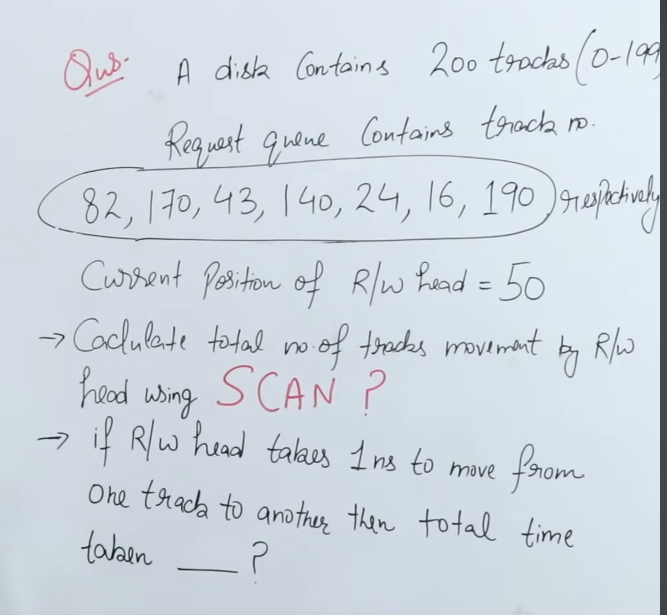 Qus. A disk Contains 200 tracks (0-199
Request queue Contains track no.
82, 170, 43, 140, 24, 16, 190 respectively
Current Position of R/W head = 50
→ Caclulate total no. of tracks movement by R/W
head using SCAN ?
→ if R/W head takes 1ns to move from
one track to another then total time
taken ___ ?